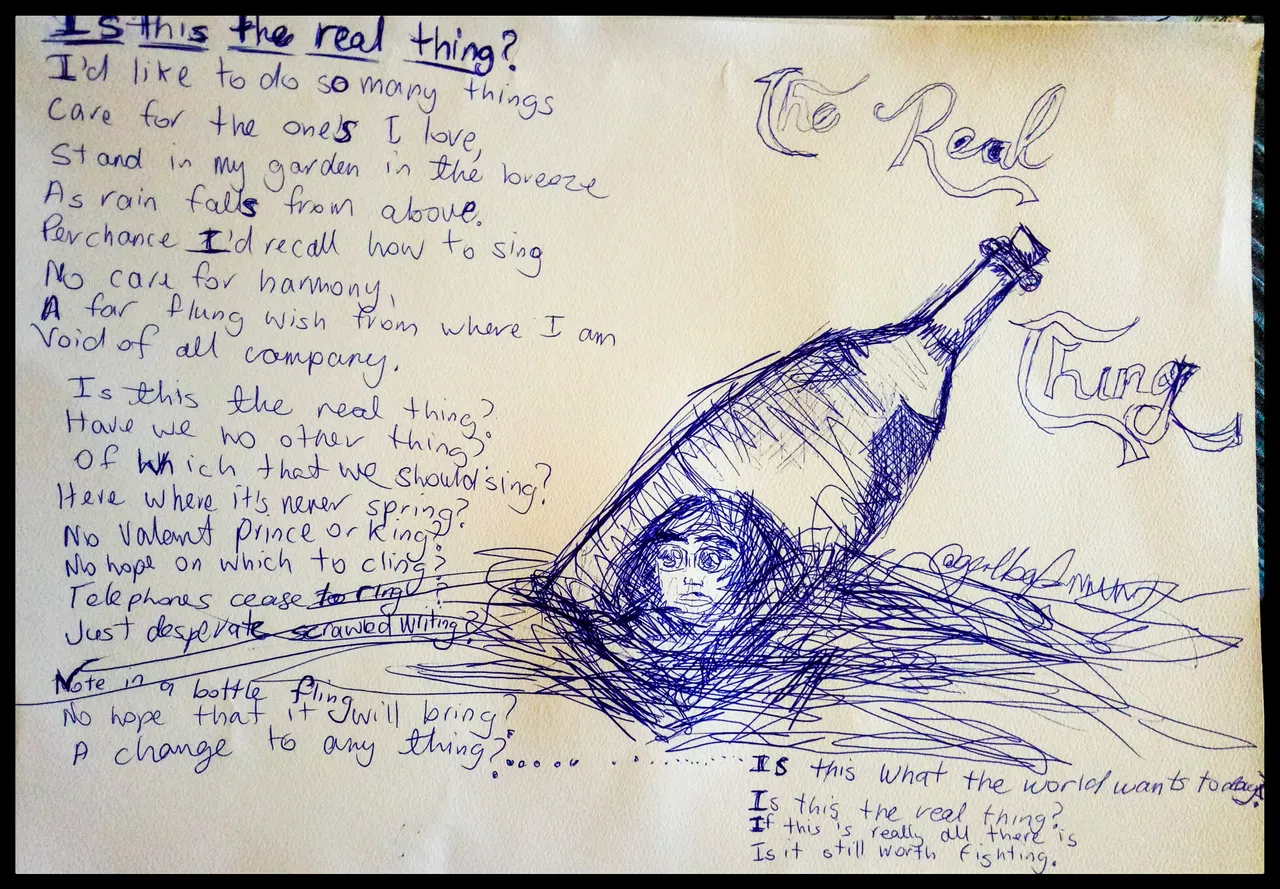 Is this the real thing?
I'd like to do so many things
Care for the one's I love,
Stand in my garden in the breeze
As rain falls from above.
Perchance I'd recall how to sing
No care for harmony,
A far flung wish from where I am
Void of all company.
Is this the real thing?
Have we no other thing?
Of which that we should sing?
Here where it's never spring?
No Valent prince or king?
No hope on which to cling?
Telephones cease to ring?
Just desperate scrawled writing?
Note in a bottle fling
No hope that it will bring?
A change to any thing?
The Real
Thing
Is this what the world wants today?
Is this the real thing?
If this is really all there is
Is it still worth fighting.